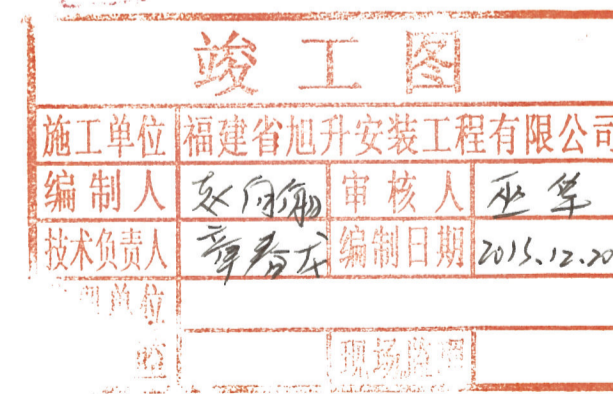 竣工图
施工单位 福建省旭升安装工程有限公司
编制人 审核人 巫华
技术负责人 章春龙 编制日期 2015.12.20
单位
现场监理